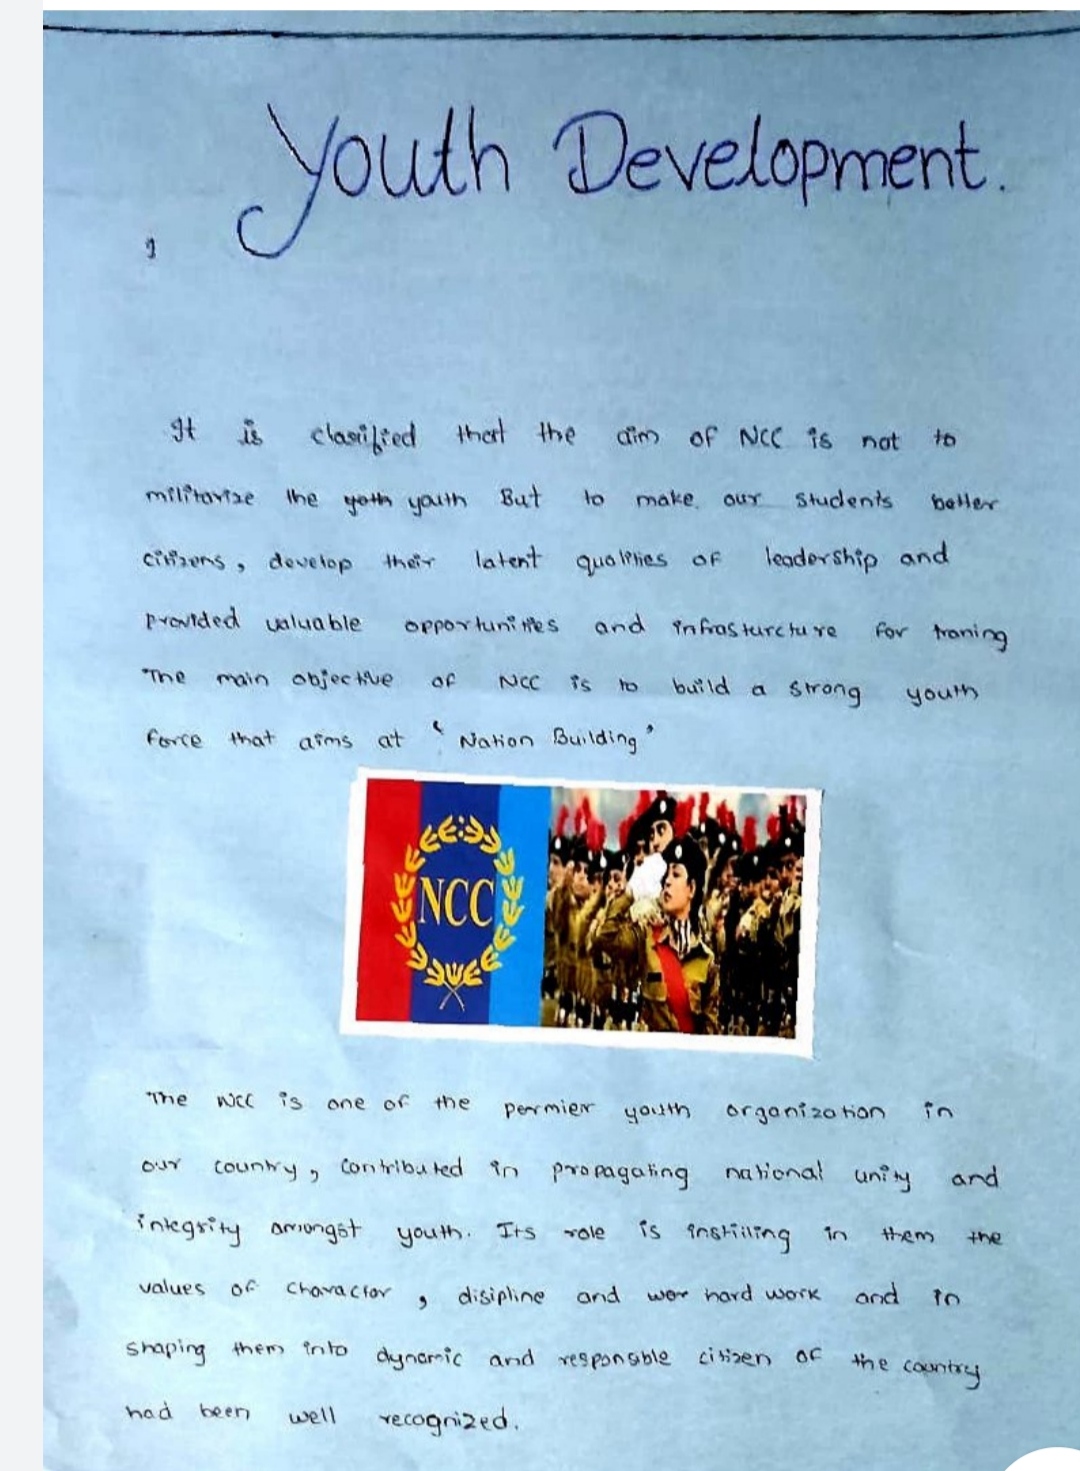 Youth Development.
g
It is clasified that the aim of NCC is not to
militarize the yoth youth But to make our students better
citizens, develop their latent qualities of leadership and
provided valuable opportunities and infrasturcture for traning
The main objective of NCC is to build a strong youth
force that aims at ‘Nation Building’
NCC
The NCC is one of the permier youth organization in
our country, contributed in propagating national unity and
integrity amongst youth. Its role is instilling in them the
values of charactor, disipline and wor hard work and in
shaping them into dynamic and responsible citizen of the country
had been well recognized.